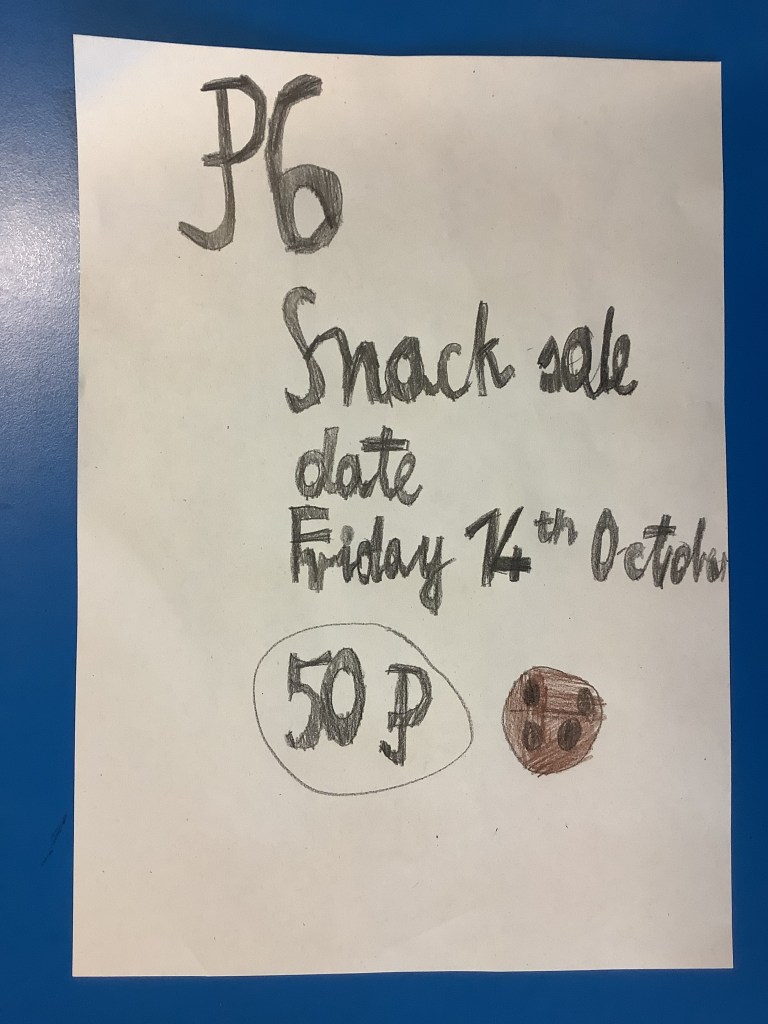 P6
Snack sale
date
Friday 14th October
50 P